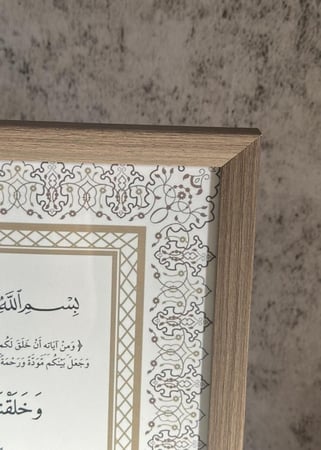 بِسْمِ ٱللَّهِ
﴿ وَمِنْ آيَاتِهِ أَنْ خَلَقَ لَكُم
وَجَعَلَ بَيْنَكُم مَّوَدَّةً وَرَحْمَةً